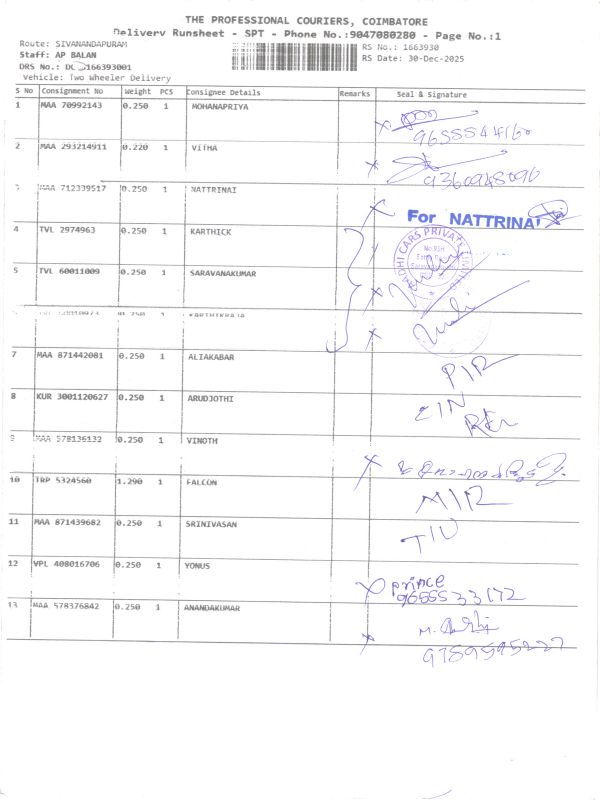 THE PROFESSIONAL COURIERS, COIMBATORE
Delivery Runsheet - SPT - Phone No.:9047080280 - Page No.:1
Route: SIVANANDAPURAM
RS No.: 1663930
Staff: AP BALAN
RS Date: 30-Dec-2025
DRS No.: 166393001
Vehicle: Two Wheeler Delivery
S No Consignment No Weight PCS Consignee Details Remarks Seal & Signature
1 MAA 70992143 0.250 1 MOHANAPRIYA
9655544160
2 MAA 293214911 0.220 1 VITHA
9360948096
3 MAA 712339517 0.250 1 NATTRINAI
For NATTRINA
4 TVL 2974963 0.250 1 KARTHICK
5 TVL 60011009 0.250 1 SARAVANAKUMAR
0.250 1 KARTHIKRAJA
7 MAA 871442081 0.250 1 ALIAKABAR
PIR
8 KUR 3001120627 0.250 1 ARUDJOTHI
EIN
9 MAA 578136132 0.250 1 VINOTH
10 TRP 5324560 1.290 1 FALCON
MIR
11 MAA 871439682 0.250 1 SRINIVASAN
TIU
12 VPL 408016706 0.250 1 YONUS
prince
9655533172
13 MAA 578376842 0.250 1 ANANDAKUMAR
9789595227